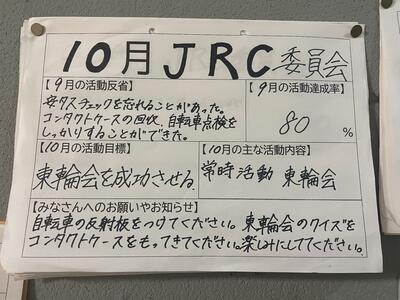 10月JRC委員会
【9月の活動反省】
安タスチェックを忘れることがあった。
コンタクトケースの回収、自転車点検を
しっかりすることができた。
【9月の活動達成率】
80 %
【10月の活動目標】
東輪会を成功させる
【10月の主な活動内容】
常時活動 東輪会
【みなさんへのお願いやお知らせ】
自転車の反射板をつけてください。東輪会のクイズを
コンタクトケースをもってきてください。楽しみにしてください。